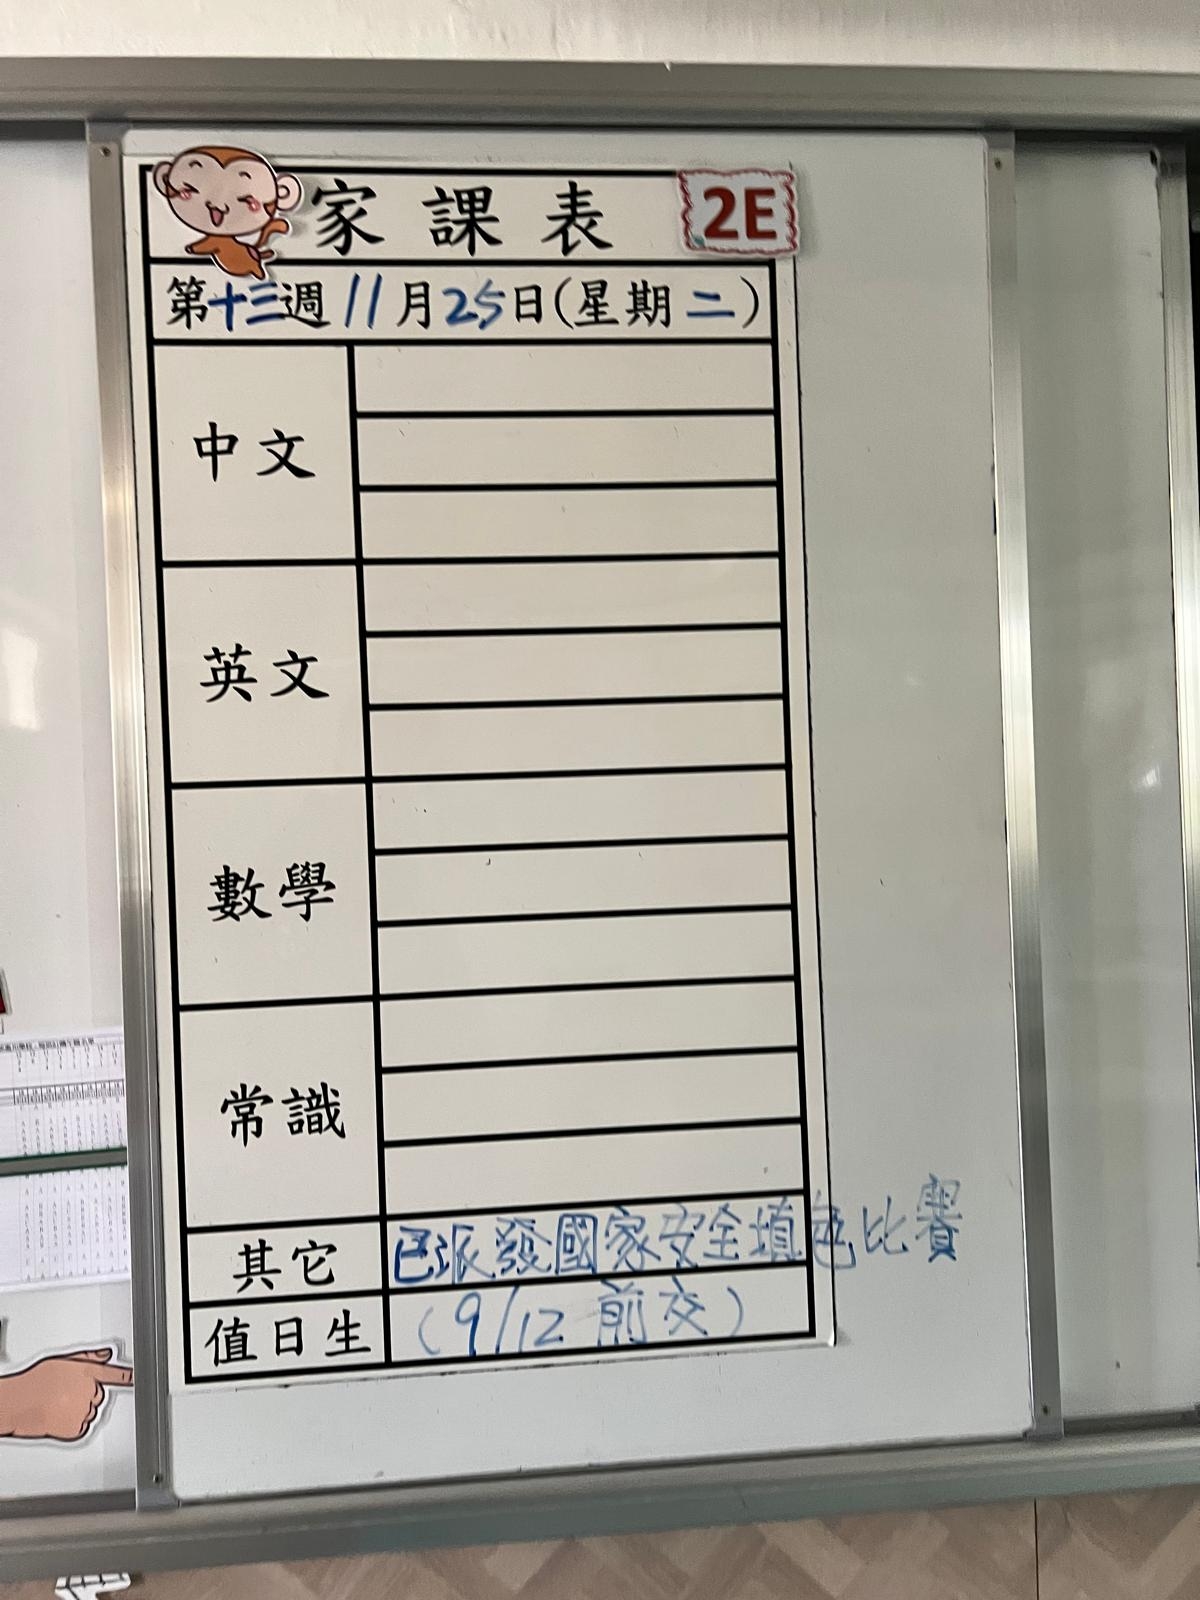 家課表 2E
第十三週 11月25日(星期二)
中文
英文
數學
常識
其它 已派發國家安全填色比賽
值日生 (9/12 前交)